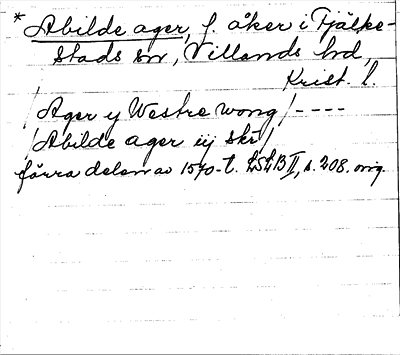 * Abilde ager, f. åker i Fjälke-
stads sn, Villands hd,
Krist. l.
/Ager y Westre wong/ ----
/Abilde ager iij skr/
förra delen av 1570-t. LSLB II, s. 208. orig.